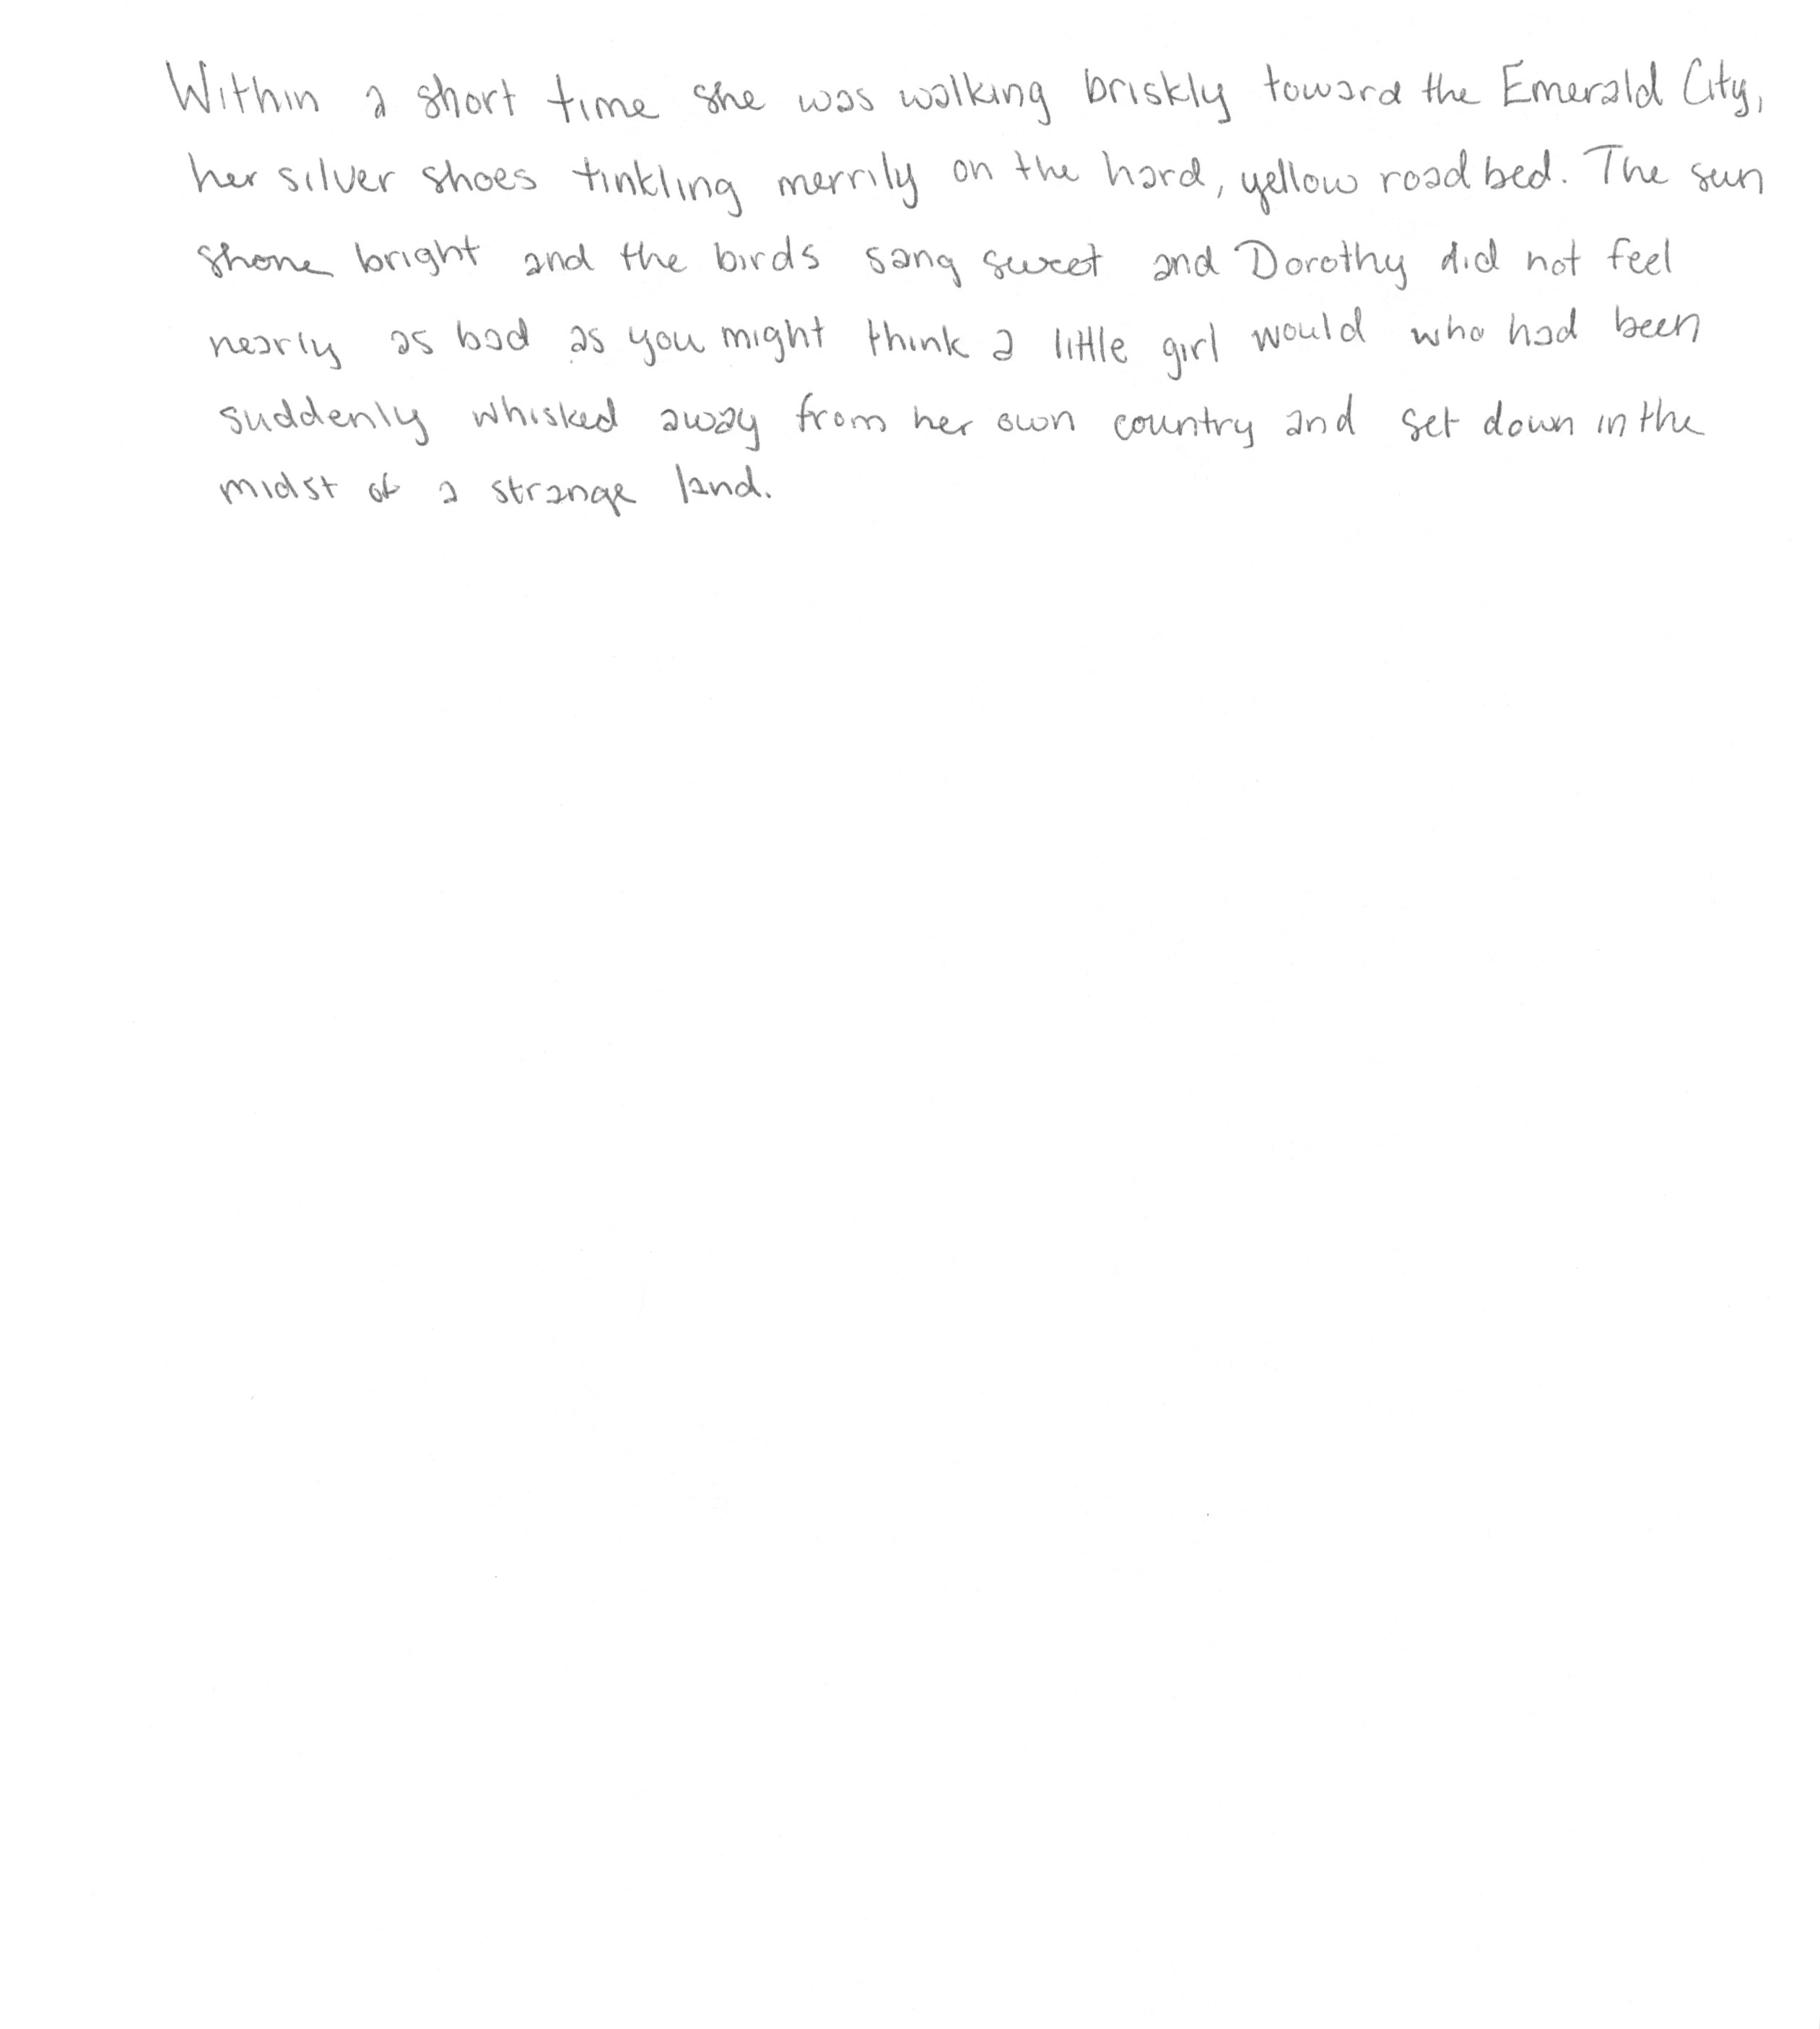 Within a short time she was walking briskly toward the Emerald City,
her silver shoes tinkling merrily on the hard, yellow road bed. The sun
shone bright and the birds sang sweet and Dorothy did not feel
nearly as bad as you might think a little girl would who had been
suddenly whisked away from her own country and set down in the
midst of a strange land.